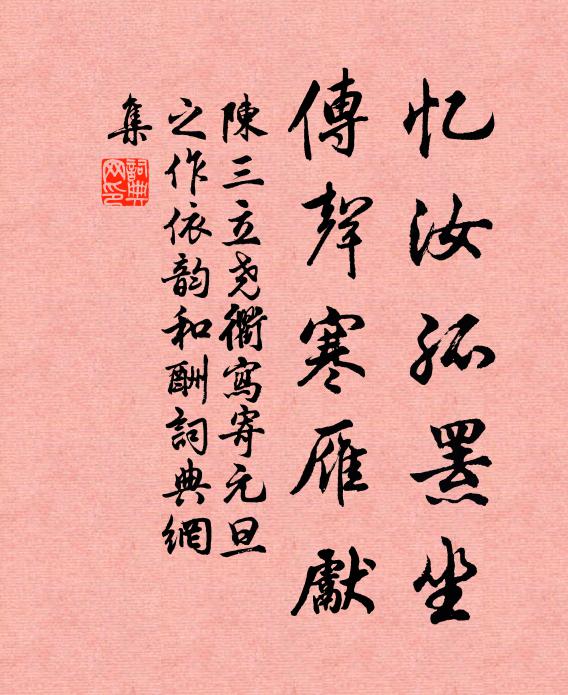 忆汝孤罴坐
傳聲寒雁獻
陳三立尧衢寫寄元旦
之作依韵和酬詞典網
集
詞典
网印